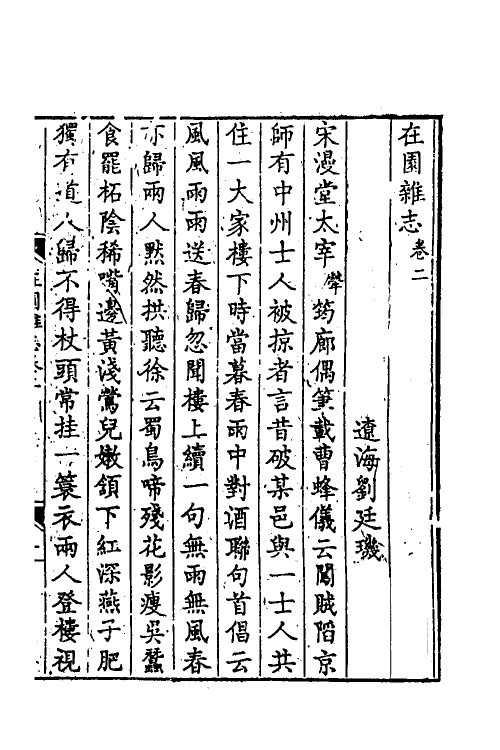 在園雜志卷二
遼海劉廷璣
宋漫堂太宰犖筠廊偶筆載曹蜂儀云闖賊陷京
師有中州士人被掠者言昔破某邑與一士人共
住一大家樓下時當暮春雨中對酒聯句首倡云
風風雨雨送春歸忽聞樓上續一句無雨無風春
亦歸兩人黙然拱聽徐云蜀鳥啼殘花影瘦吳蠶
食罷柘陰稀嘴邊黃淺鶯兒嫩頷下紅深燕子肥
獨有道人歸不得杖頭常挂一簑衣兩人登樓視
在園雜志卷二